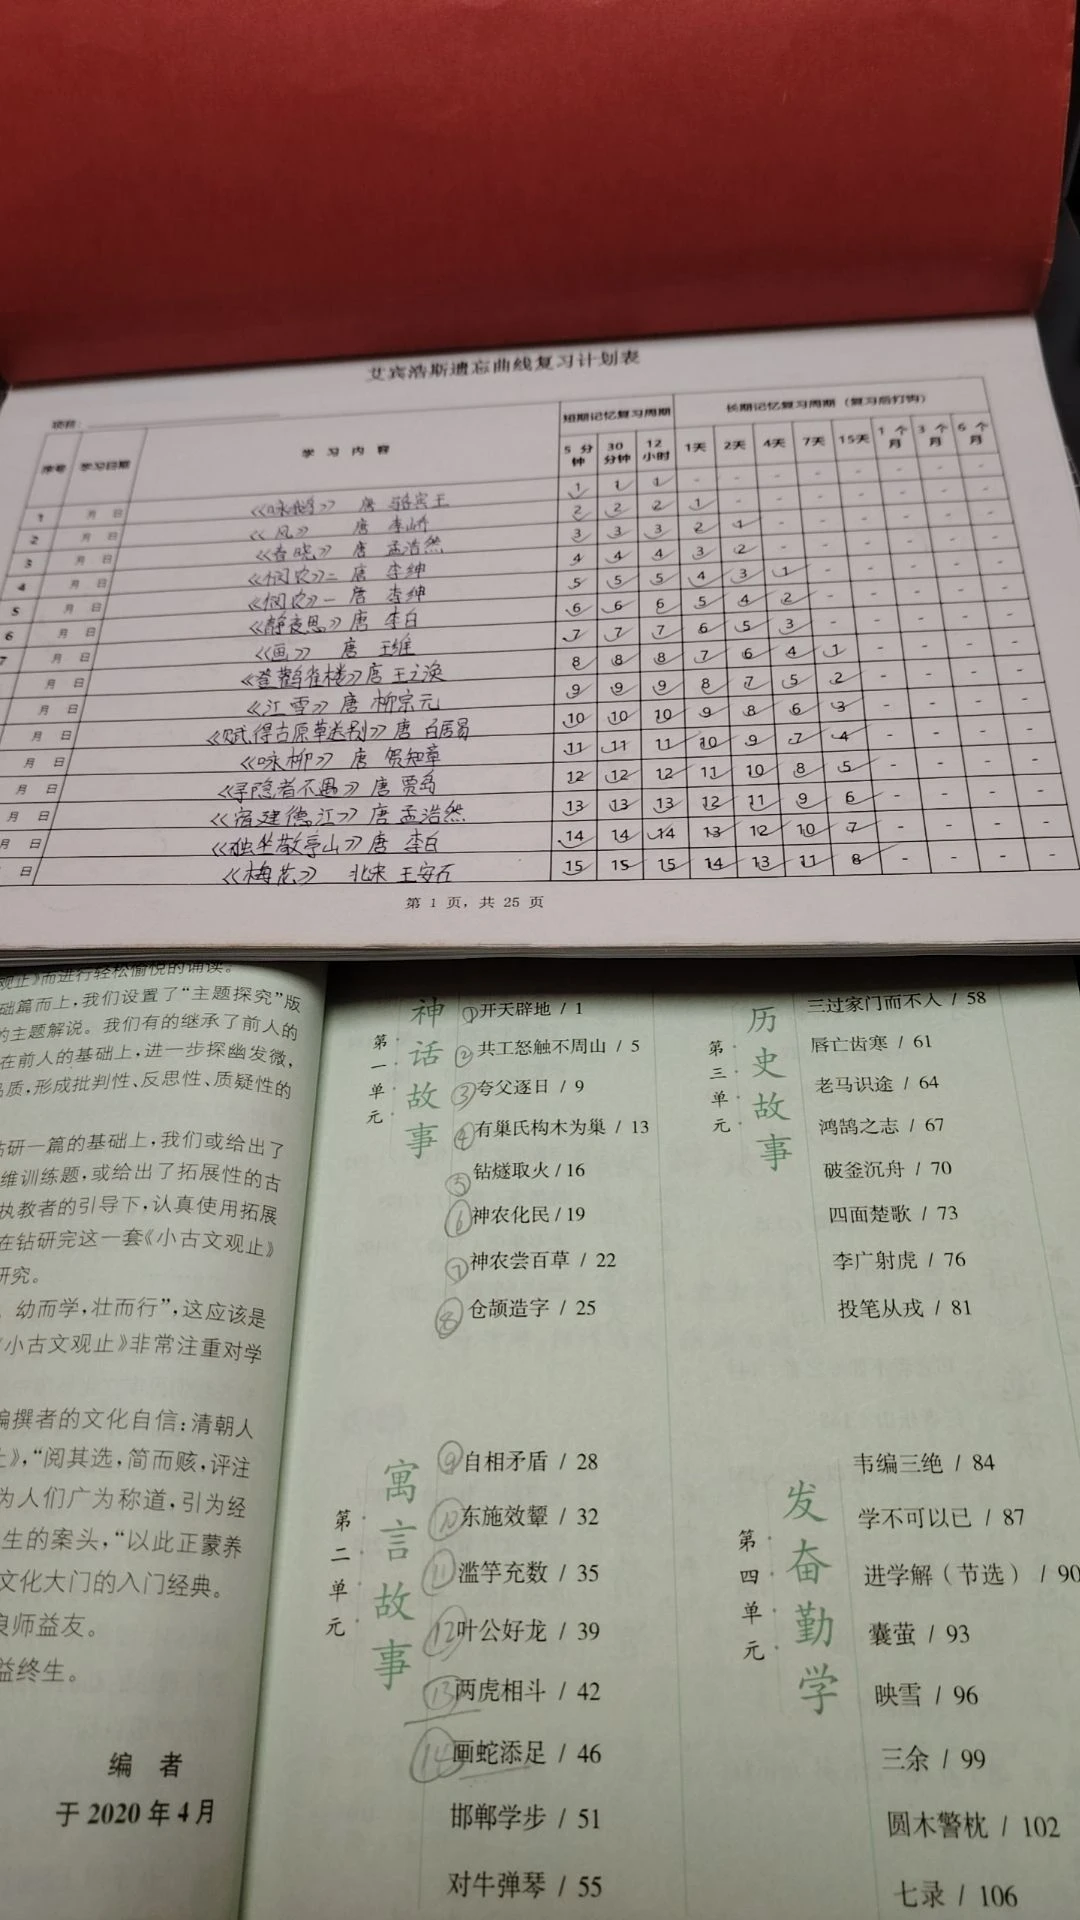 艾宾浩斯遗忘曲线复习计划表
项目：
序号 学习日期 学 习 内 容 短期记忆复习周期 长期记忆复习周期（复习后打钩）
5 分钟 30 分钟 12 小时 1天 2天 4天 7天 15天 1 个月 3 个月 6 个月
1 月 日 《咏鹅》 唐 骆宾王 1 1 1 - - - - - - - -
2 月 日 《风》 唐 李峤 2 2 2 1 - - - - - - -
3 月 日 《春晓》 唐 孟浩然 3 3 3 2 1 - - - - - -
4 月 日 《悯农》二 唐 李绅 4 4 4 3 2 - - - - - -
5 月 日 《悯农》一 唐 李绅 5 5 5 4 3 1 - - - - -
6 月 日 《静夜思》 唐 李白 6 6 6 5 4 2 - - - - -
7 月 日 《画》 唐 王维 7 7 7 6 5 3 - - - - -
月 日 《登鹳雀楼》 唐 王之涣 8 8 8 7 6 4 1 - - - -
月 日 《江雪》 唐 柳宗元 9 9 9 8 7 5 2 - - - -
月 日 《赋得古原草送别》 唐 白居易 10 10 10 9 8 6 3 - - - -
月 日 《咏柳》 唐 贺知章 11 11 11 10 9 7 4 - - - -
月 日 《寻隐者不遇》 唐 贾岛 12 12 12 11 10 8 5 - - - -
月 日 《宿建德江》 唐 孟浩然 13 13 13 12 11 9 6 - - - -
月 日 《独坐敬亭山》 唐 李白 14 14 14 13 12 10 7 - - - -
日 《梅花》 北宋 王安石 15 15 15 14 13 11 8 - - - -
第 1 页，共 25 页
观止》而进行轻松愉悦的诵读。
础篇而上，我们设置了“主题探究”版
的主题解说。我们有的继承了前人的
在前人的基础上，进一步探幽发微，
品质，形成批判性、反思性、质疑性的
钻研一篇的基础上，我们或给出了
维训练题，或给出了拓展性的古
执教者的引导下，认真使用拓展
在钻研完这一套《小古文观止》
研究。
幼而学，壮而行”，这应该是
《小古文观止》非常注重对学
编撰者的文化自信：清朝人
止》，“阅其选，简而赅，评注
为人们广为称道，引为经
生的案头，“以此正蒙养
文化大门的入门经典。
良师益友。
益终生。
编 者
于 2020 年 4 月
第一单元 神话故事
①开天辟地 / 1
②共工怒触不周山 / 5
③夸父逐日 / 9
④有巢氏构木为巢 / 13
⑤钻燧取火 / 16
⑥神农化民 / 19
⑦神农尝百草 / 22
⑧仓颉造字 / 25
第二单元 寓言故事
⑨自相矛盾 / 28
⑩东施效颦 / 32
⑪滥竽充数 / 35
⑫叶公好龙 / 39
⑬两虎相斗 / 42
⑭画蛇添足 / 46
邯郸学步 / 51
对牛弹琴 / 55
第三单元 历史故事
三过家门而不入 / 58
唇亡齿寒 / 61
老马识途 / 64
鸿鹄之志 / 67
破釜沉舟 / 70
四面楚歌 / 73
李广射虎 / 76
投笔从戎 / 81
第四单元 发奋勤学
韦编三绝 / 84
学不可以已 / 87
进学解（节选） / 90
囊萤 / 93
映雪 / 96
三余 / 99
圆木警枕 / 102
七录 / 106